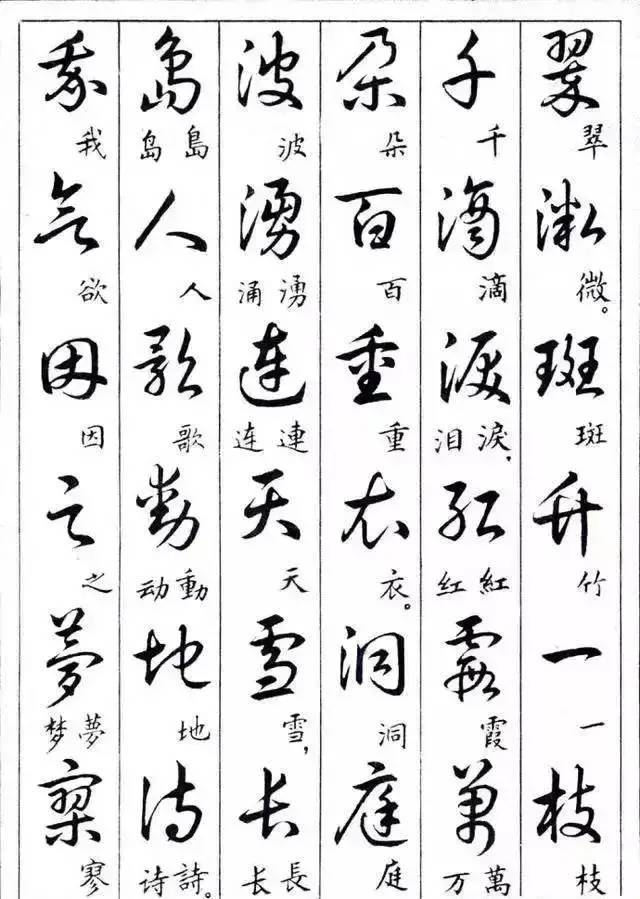 翠微斑竹一枝
翠微。斑竹一枝
千滴泪红霞萬
千滴淚,泪紅红霞萬万
朵百重衣洞庭
朵百重衣。洞庭
波湧连天雪长
波湧涌連连天雪,長长
島人歌動地诗
島岛人歌動动地詩。诗
我欲因之夢寥
我欲因之夢梦寥